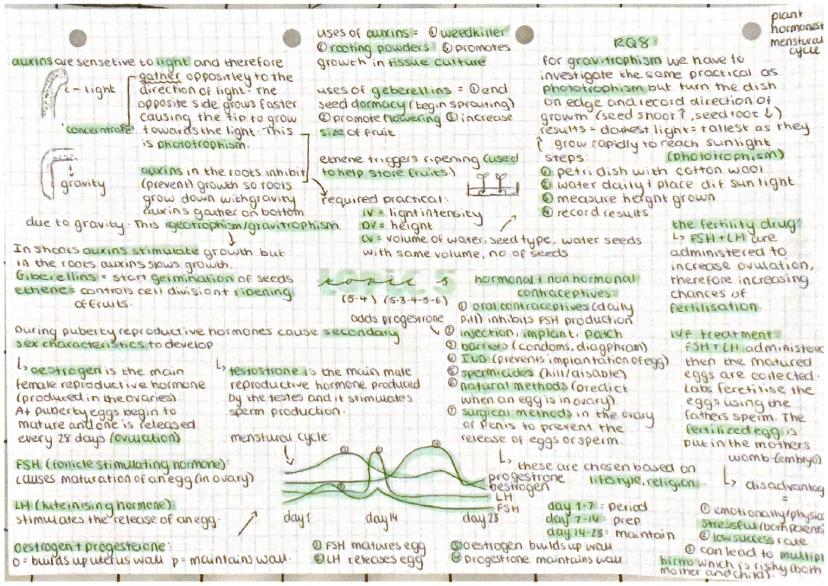 plant
hormones
menstural
cycle
auxins are sensetive to light and therefore
gather oppositley to the
direction of light. The
opposite side grows faster
causing the tip to grow
towards the light. This
is phototrophism.
← light
"concentrate"
gravity
auxins in the roots inhibit
(prevent) growth so roots
grow down with gravity
auxins gather on bottom
due to gravity. This is geotrophism/gravitrophism.
In shoots auxins stimulate growth but
in the roots auxins slows growth.
Giberellins = start germination of seeds
ethene = controls cell division + ripening
of fruits.
uses of auxins = ① weedkiller
② rooting powders ③ promotes
growth in tissue culture
uses of geberellins = ① end
seed dormacy (begin sprouting)
② promote flowering ③ increase
size of fruit
ethene triggers ripening (used
to help store fruits)
required practical:
IV = light intensity
DV = height
CV = volume of water, seed type, water seeds
with same volume, no of seeds
RQ8:
for gravitrophism we have to
investigate the same practical as
phototrophism but turn the dish
on edge and record direction of
growth (seed shoot ↑, seed root ↓)
results = darkest light = tallest as they
↑ grow rapidly to reach sunlight
steps: (phototrophism)
① petri dish with cotton wool
② water daily + place dif sun light
③ measure height grown
④ record results
topic 5
(5.4) (5.3.4-5-6)
During puberty reproductive hormones cause secondary
sex characteristics to develop
↳ oestrogen is the main
female reproductive hormone
(produced in the ovaries).
At puberty eggs begin to
mature and one is released
every 28 days (ovulation)
↳ testostrone is the main male
reproductive hormone produced
by the testes and it stimulates
sperm production.
FSH (follicle stimulating hormone):
causes maturation of an egg (in ovary)
LH (luteinising hormone)
stimulates the release of an egg.
oestrogen + progesterone:
o = builds up uterus wall p = maintains wall.
menstural cycle:
progestrone
oestrogen
LH
FSH
day 1 day 14 day 28
① FSH matures egg
② LH releases egg
③ oestrogen builds up wall
④ progestrone maintains wall
day 1-7: period
day 7-14: prep
day 14-28: maintain
hormonal + non hormonal
contraceptives:
adds progestrone
① oral contraceptives (daily
pill) inhibits FSH production
② injection, implant, patch
③ barriers (condoms, diaphram)
④ IUD (prevents implantation of egg)
⑤ spermicides (kill/disable)
⑥ natural methods (predict
when an egg is in ovary)
⑦ surgical methods in the ovary
or penis to prevent the
release of eggs or sperm.
↳ these are chosen based on
lifestyle, religion
the fertility drug:
↳ FSH + LH are
administered to
increase ovulation,
therefore increasing
chances of
fertilisation.
IVF treatment:
FSH + LH administere
then the matured
eggs are collected.
Labs feretilise the
eggs using the
fathers sperm. The
fertilized egg is
put in the mothers
womb (embryo)
↳ disadvantag
=
① emotionally/physica
stressful (both parents)
② low success rate
③ can lead to multipl
births which is risky (both
mother and child)